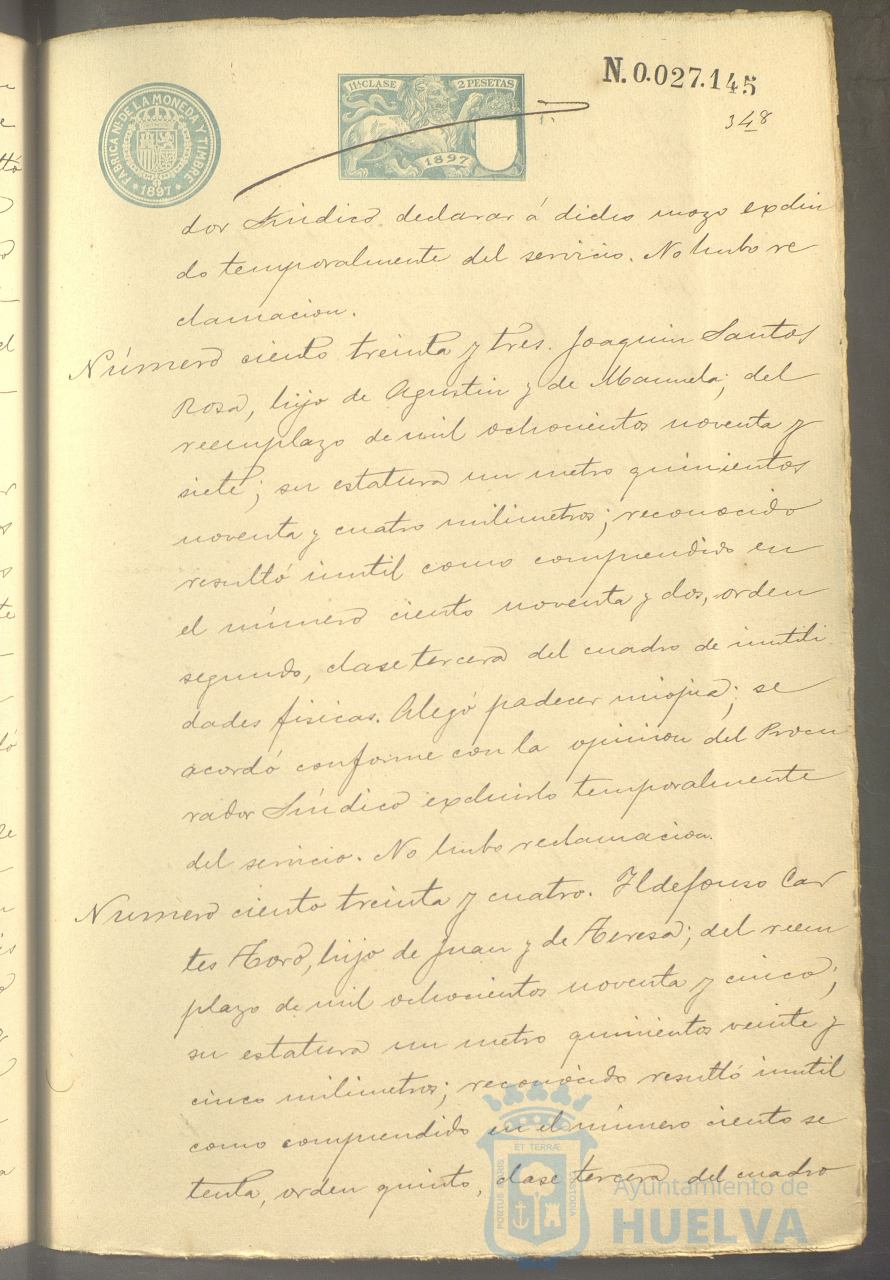 FABRICA Nal DE LA MONEDA Y TIMBRE
* 1897 *
11ª CLASE 2 PESETAS
1897
N. 0.027.145
348
dor Síndico declarar á dicho mozo exclui
do temporalmente del servicio. No hubo re
clamacion.
Número ciento treinta y tres. Joaquin Santos
Rosa, hijo de Agustin y de Manuela; del
reemplazo de mil ochocientos noventa y
siete; su estatura un metro quinientos
noventa y cuatro milimetros; reconocido
resultó inutil como comprendido en
el número ciento noventa y dos, orden
segundo, clase tercera del cuadro de inutili
dades fisicas. Alegó padecer miopia; se
acordó conforme con la opinion del Procu
rador Síndico excluirlo temporalmente
del servicio. No hubo reclamacion.
Número ciento treinta y cuatro. Ildefonso Cor
tes Toro, hijo de Juan y de Teresa; del reem
plazo de mil ochocientos noventa y cinco;
su estatura un metro quinientos veinte y
cinco milimetros; reconocido resultó inutil
como comprendido en el número ciento se
tenta, orden quinto, clase tercera del cuadro
PORTUS MARIS ET TERRÆ CUSTODIA
Ayuntamiento de
HUELVA